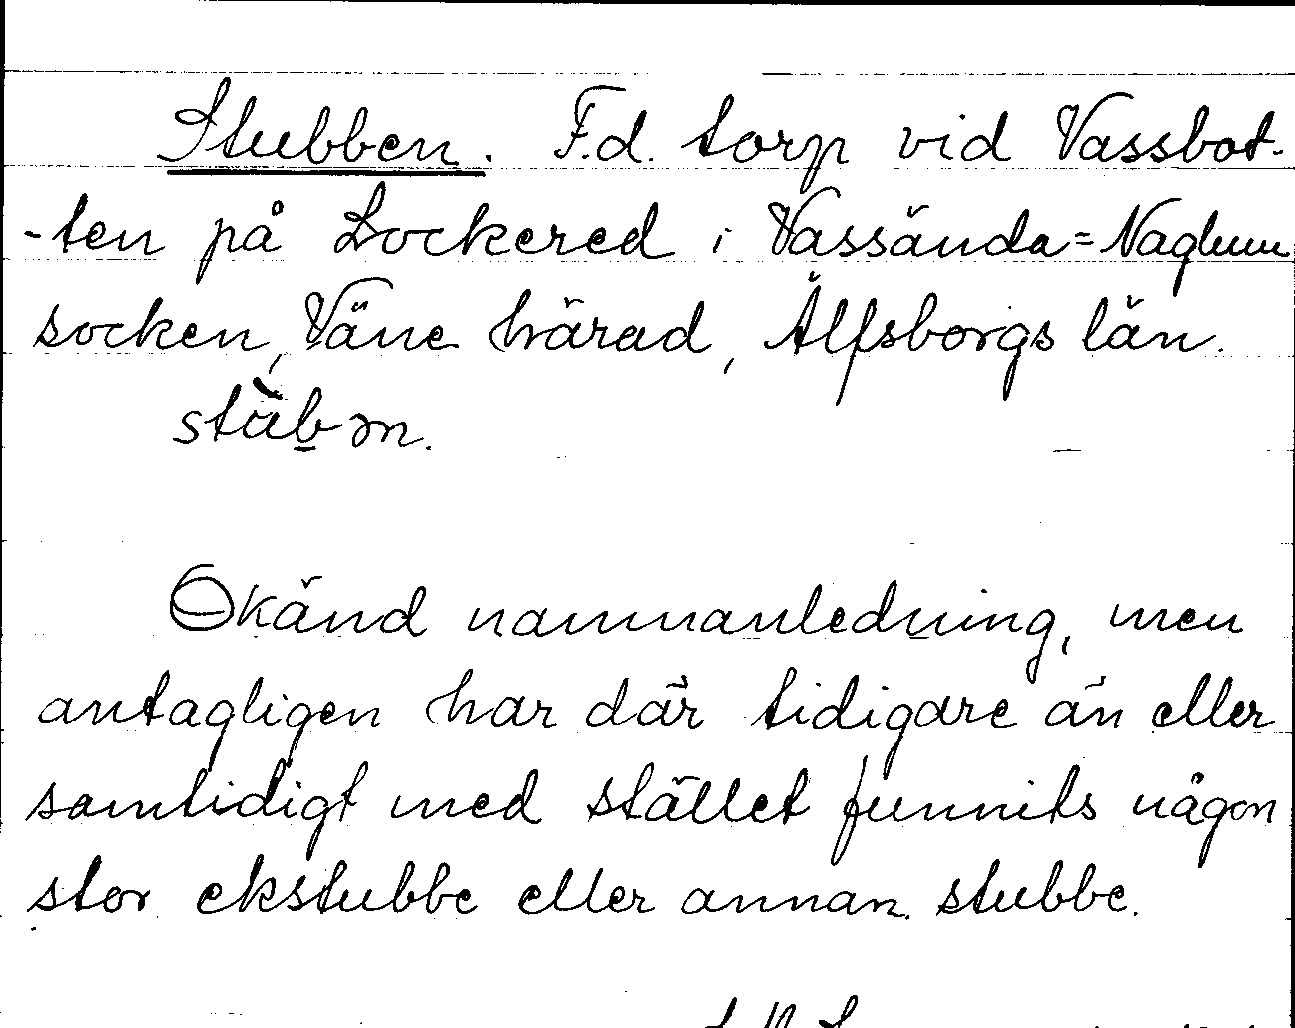 Stubben. F.d. torp vid Vassbot-
-ten på Lockered i Vassända=Naglum
socken, Väne härad, Älfsborgs län.
Okänd namnanledning, men
antagligen har där tidigare än eller
samtidigt med stället funnits någon
stor ekstubbe eller annan stubbe.